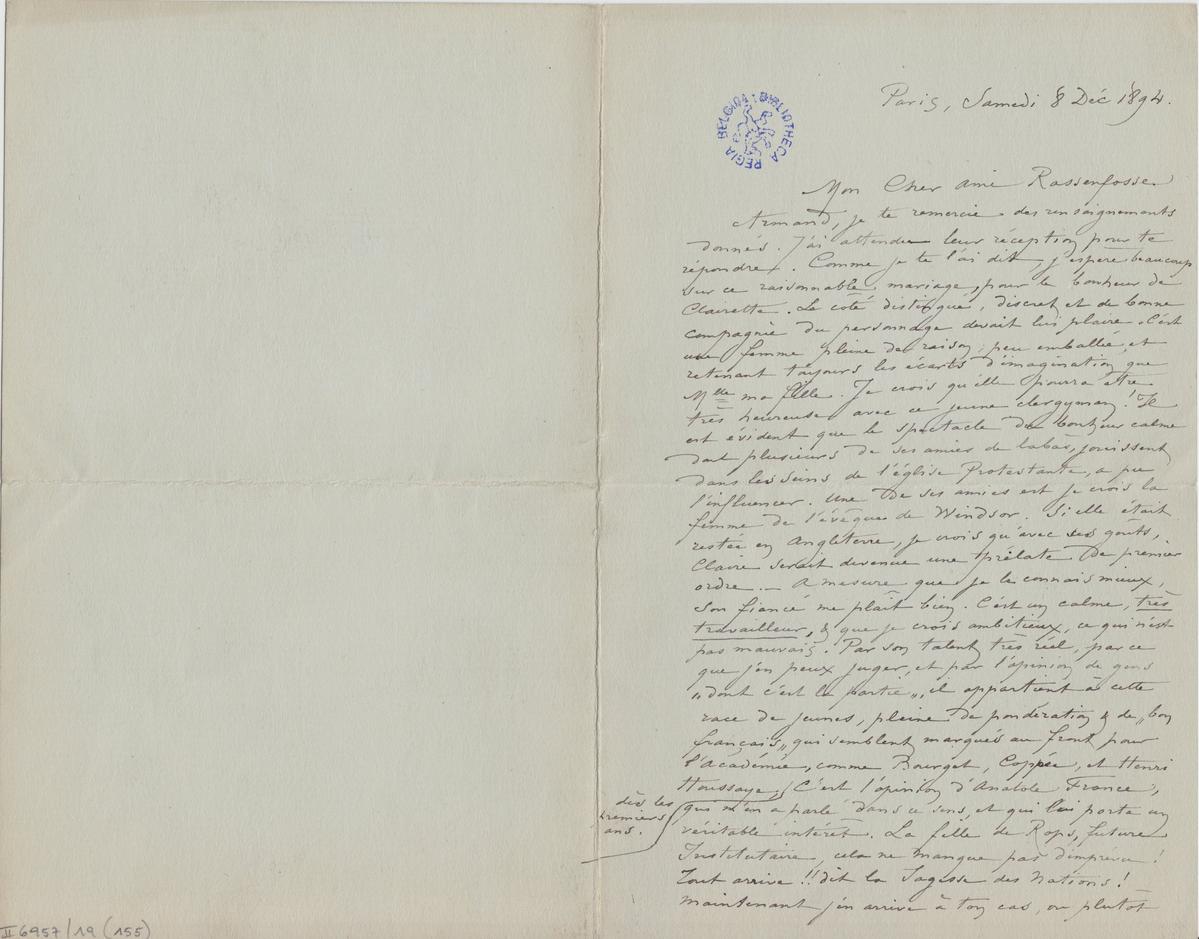 Paris, Samedi 8 Déc 1894.
BIBLIOTHECA REGIA BELGICA
Mon Cher ami Rassenfosse
Armand, je te remercie des renseignements
donnés. J'ai attendu leur réception pour te
répondre. Comme je te l'ai dit, j'espère beaucoup
sur ce raisonnable mariage, pour le bonheur de
Clairette. Le côté distingué, discret et de bonne
compagnie du personnage devait lui plaire. C'est
une femme pleine de raison, peu emballée, et
retenant toujours les écarts d'imagination que
Mlle ma fille. Je crois qu'elle pourra être
très heureuse avec ce jeune clergyman! Il
est évident que le spectacle du bonheur calme
dont plusieurs de ses amies de labas, jouissent
dans les seins de l'église Protestante, a pu
l'influencer. Une de ses amies est je crois la
femme de l'évêque de Windsor. Si elle était
restée en Angleterre, je crois qu'avec ses goûts,
Claire serait devenue une prélate de premier
ordre. — A mesure que je le connais mieux,
son fiancé me plaît bien. C'est un calme, très
travailleur, & que je crois ambitieux, ce qui n'est
pas mauvais. Par son talent très réel, par ce
que j'en peux juger, et par l'opinion de gens
„dont c'est la partie„, il appartient à cette
race de jeunes, pleine de pondération & de „bon
français„ qui semblent marqués au front pour
l'Académie, comme Bourget, Coppée, et Henri
Houssaye, C'est l'opinion d'Anatole France,
dès les
premiers
ans.
qui m'en a parlé dans ce sens, et qui lui porte un
véritable intérêt. La fille de Rops, future
Institutaire, cela ne manque pas d'imprévu!
Tout arrive!! dit la Sagesse des Nations!
Maintenant j'en arrive à ton cas, ou plutôt
II 6957/19 (155)